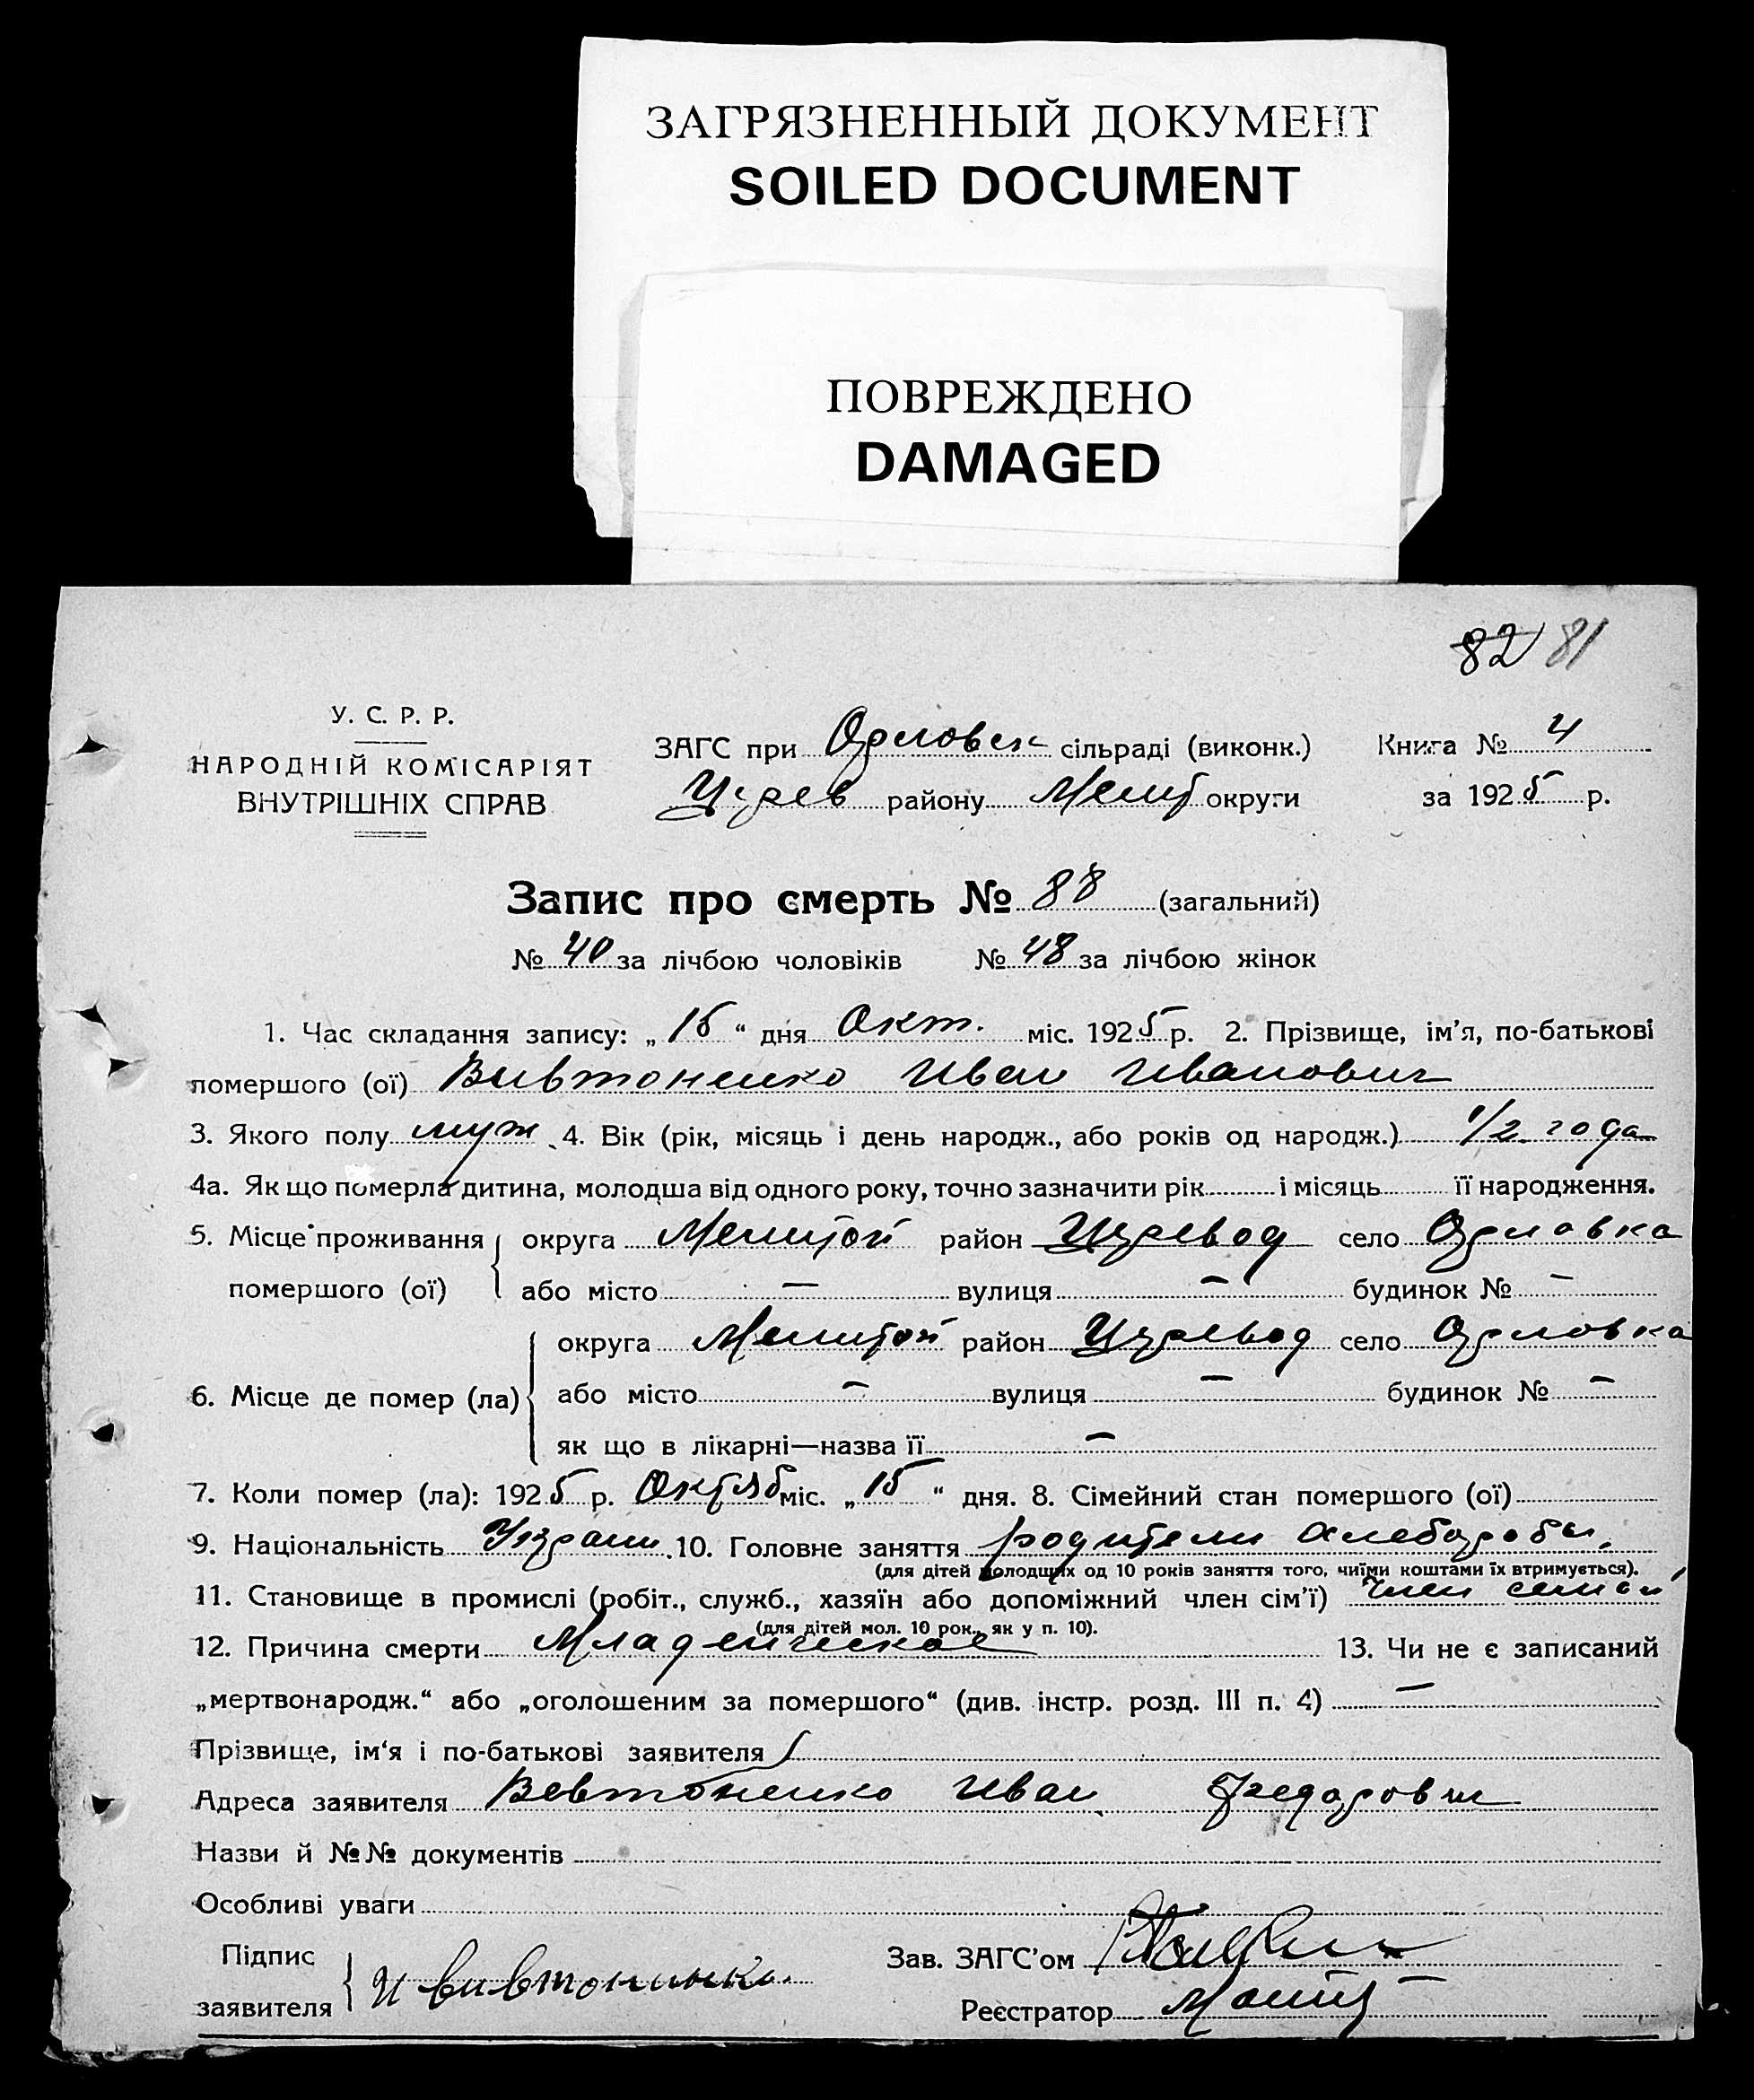 ЗАГРЯЗНЕННЫЙ ДОКУМЕНТ
SOILED DOCUMENT
ПОВРЕЖДЕНО
DAMAGED
82 81
У. С. Р. Р.
НАРОДНІЙ КОМІСАРІЯТ
ВНУТРІШНІХ СПРАВ
ЗАГС при Орловск сільраді (виконк.) Книга № 4
району Мелит округи за 1925 р.
Запис про смерть № 88 (загальний)
№ 40 за лічбою чоловіків № 48 за лічбою жінок
1. Час складання запису: „15“ дня Окт. міс. 1925 р. 2. Прізвище, ім'я, по-батькові
помершого (ої) Вивтоненко Иван Иванович
3. Якого полу муж 4. Вік (рік, місяць і день народж., або років од народж.) 1/2 года
4а. Як що померла дитина, молодша від одного року, точно зазначити рік і місяць її народження.
5. Місце проживання округа район село Орловка
помершого (ої) або місто — вулиця — будинок № —
округа район село Орловка
6. Місце де помер (ла) або місто — вулиця — будинок № —
як що в лікарні—назва її —
7. Коли помер (ла): 1925 р. Октяб міс. „15“ дня. 8. Сімейний стан помершого (ої)
9. Національність Украин. 10. Головне заняття родители хлеборобы.
(для дітей молодших од 10 років заняття того, чиїми коштами їх втримується).
11. Становище в промислі (робіт., служб., хазяїн або допоміжний член сім'ї) член семьи
(для дітей мол. 10 рок., як у п. 10).
12. Причина смерти Младенческое 13. Чи не є записаний
„мертвонародж.“ або „оголошеним за помершого“ (див. інстр. розд. III п. 4) —
Прізвище, ім'я і по-батькові заявителя
Адреса заявителя Вевтоненко Иван Федорович
Назви й №№ документів
Особливі уваги
Підпис Зав. ЗАГС'ом
заявителя И Вивтоненко Реєстратор